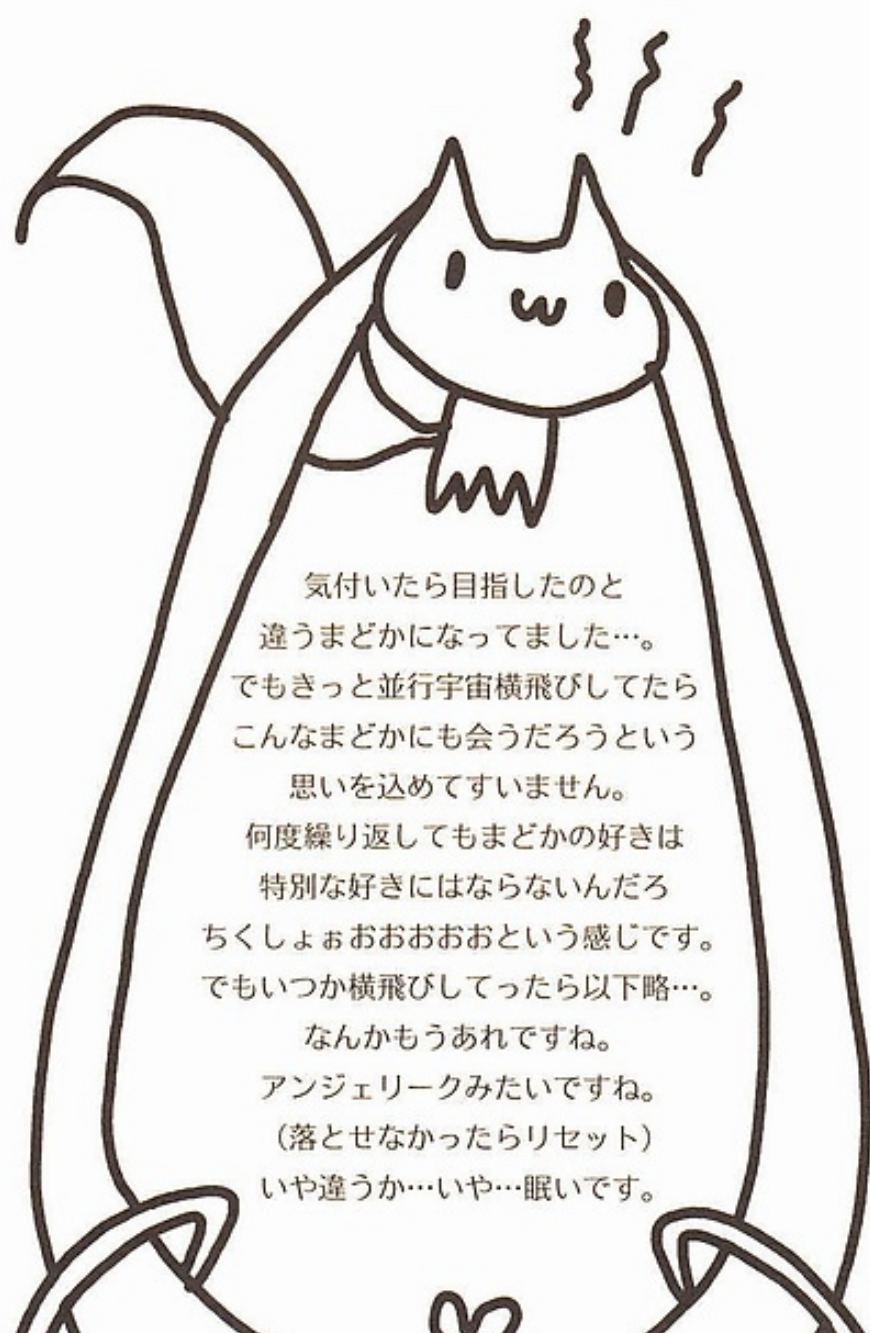 気付いたら目指したのと
違うまどかになってました…。
でもきっと並行宇宙横飛びしてたら
こんなまどかにも会うだろうという
思いを込めてすいません。
何度繰り返してもまどかの好きは
特別な好きにはならないんだろ
ちくしょぉおおおおおという感じです。
でもいつか横飛びしてったら以下略…。
なんかもうあれですね。
アンジェリークみたいですね。
（落とせなかったらリセット）
いや違うか…いや…眠いです。